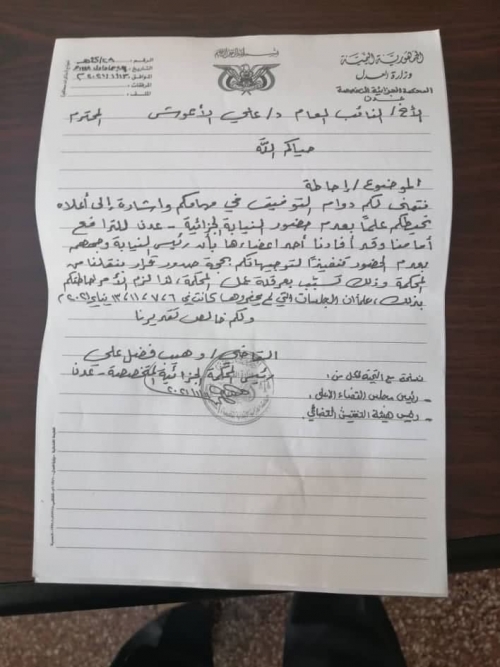 الجمهورية اليمنية
وزارة العدل
المحكمة الجزائية المتخصصة
عدن
الرقم:
التاريخ:
الموافق:
المرفقات:
الأخ/ النائب العام د/ علي الأعوش المحترم
حياكم الله
الموضوع/ إحاطة
نتمنى لكم دوام التوفيق في مهامكم واشارة إلى أعلاه
نحيطكم علماً بعدم حضور النيابة الجزائية - عدن للترافع
أمامنا وقد أفادنا أحد اعضاءها بأن رئيس النيابة وجههم
بعدم الحضور تنفيذاً لتوجيهاتكم بحجة صدور قرار بنقلنا من
المحكمة وذلك تسبب بعرقلة عمل المحكمة، هذا لزم الأمر إحاطتكم
بذلك، علماً أن الجلسات التي لم يحضروها كانت في ١٣،١١،٧،٦ يناير ٢٠٢١م
ولكم خالص تقديرنا
القاضي/ وهيب فضل علي
رئيس المحكمة الجزائية المتخصصة - عدن
نسخة مع التحية لكل من:
- رئيس مجلس القضاء الأعلى.
- رئيس هيئة التفتيش القضائي.